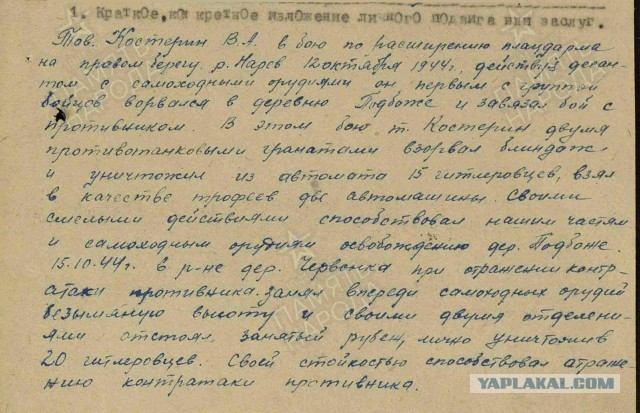 1. Краткое, конкретное изложение личного подвига или заслуг.
Тов. Костерин В.А. в бою по расширению плацдарма
на правом берегу р. Нарев 12 октября 1944 г., действуя десан-
том с самоходными орудиями он первым с группой
бойцов ворвался в деревню Подбоже и завязал бой с
противником. В этом бою т. Костерин двумя
противотанковыми гранатами взорвал блиндаж
и уничтожил из автомата 15 гитлеровцев, взял
в качестве трофеев две автомашины. Своими
смелыми действиями способствовал нашим частям
и самоходным орудиям освобождению дер. Подбоже.
15.10.44г. в р-не дер. Червонка при отражении контр-
атаки противника. Занял впереди самоходных орудий
безымянную высоту и своими двумя отделени-
ями отстоял, занятый рубеж, лично уничтожив
20 гитлеровцев. Своей стойкостью способствовал атраже-
нию контратаки противника.
YAPLAKAL.COM